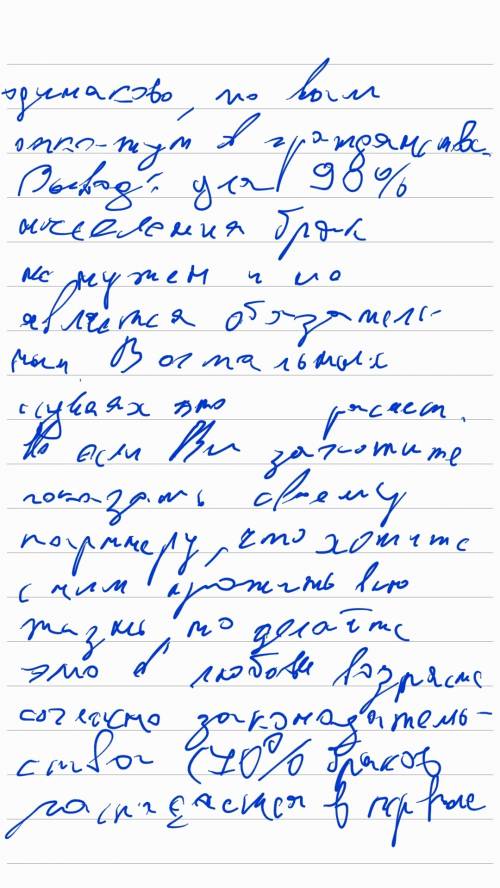 одинаково, но вам
откажут в гражданства.
Вывод: для 98%
населения брак
не нужен и не
является обязатель-
ным В остальных
случаях это расчет.
Но если Вы захотите
показать своему
партнеру, что хотите
с ним прожить всю
жизнь, то делайте
это в любом возрасте
согласно законодатель-
ства (70% браков
распадается в первые